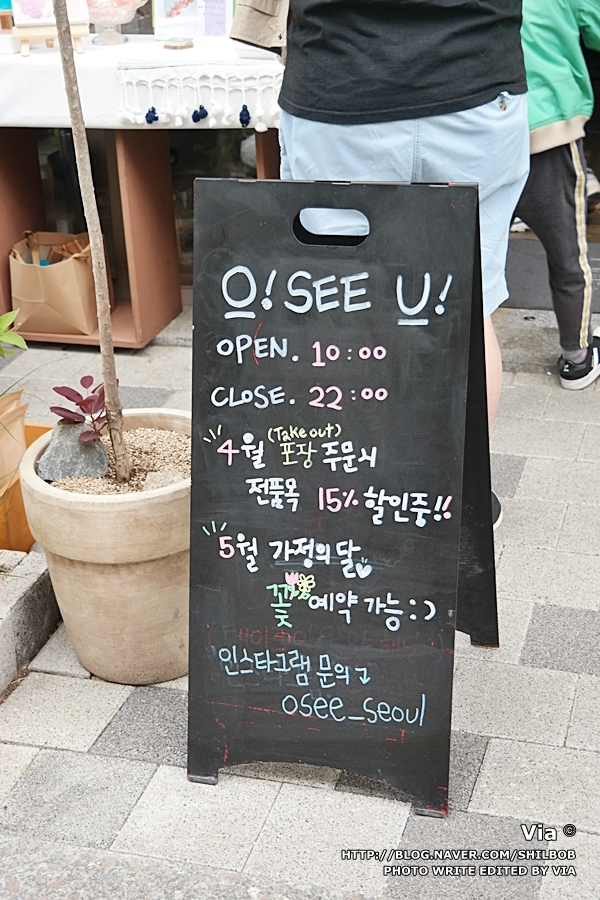 O! SEE U!
OPEN. 10:00
CLOSE. 22:00
(Take out)
4월 포장 주문시
전품목 15% 할인중!!
5월 가정의달
꽃 예약 가능:)
인스타그램 문의
osee_seoul
Via ©
HTTP://BLOG.NAVER.COM/SHILBOB
PHOTO WRITE EDITED BY VIA